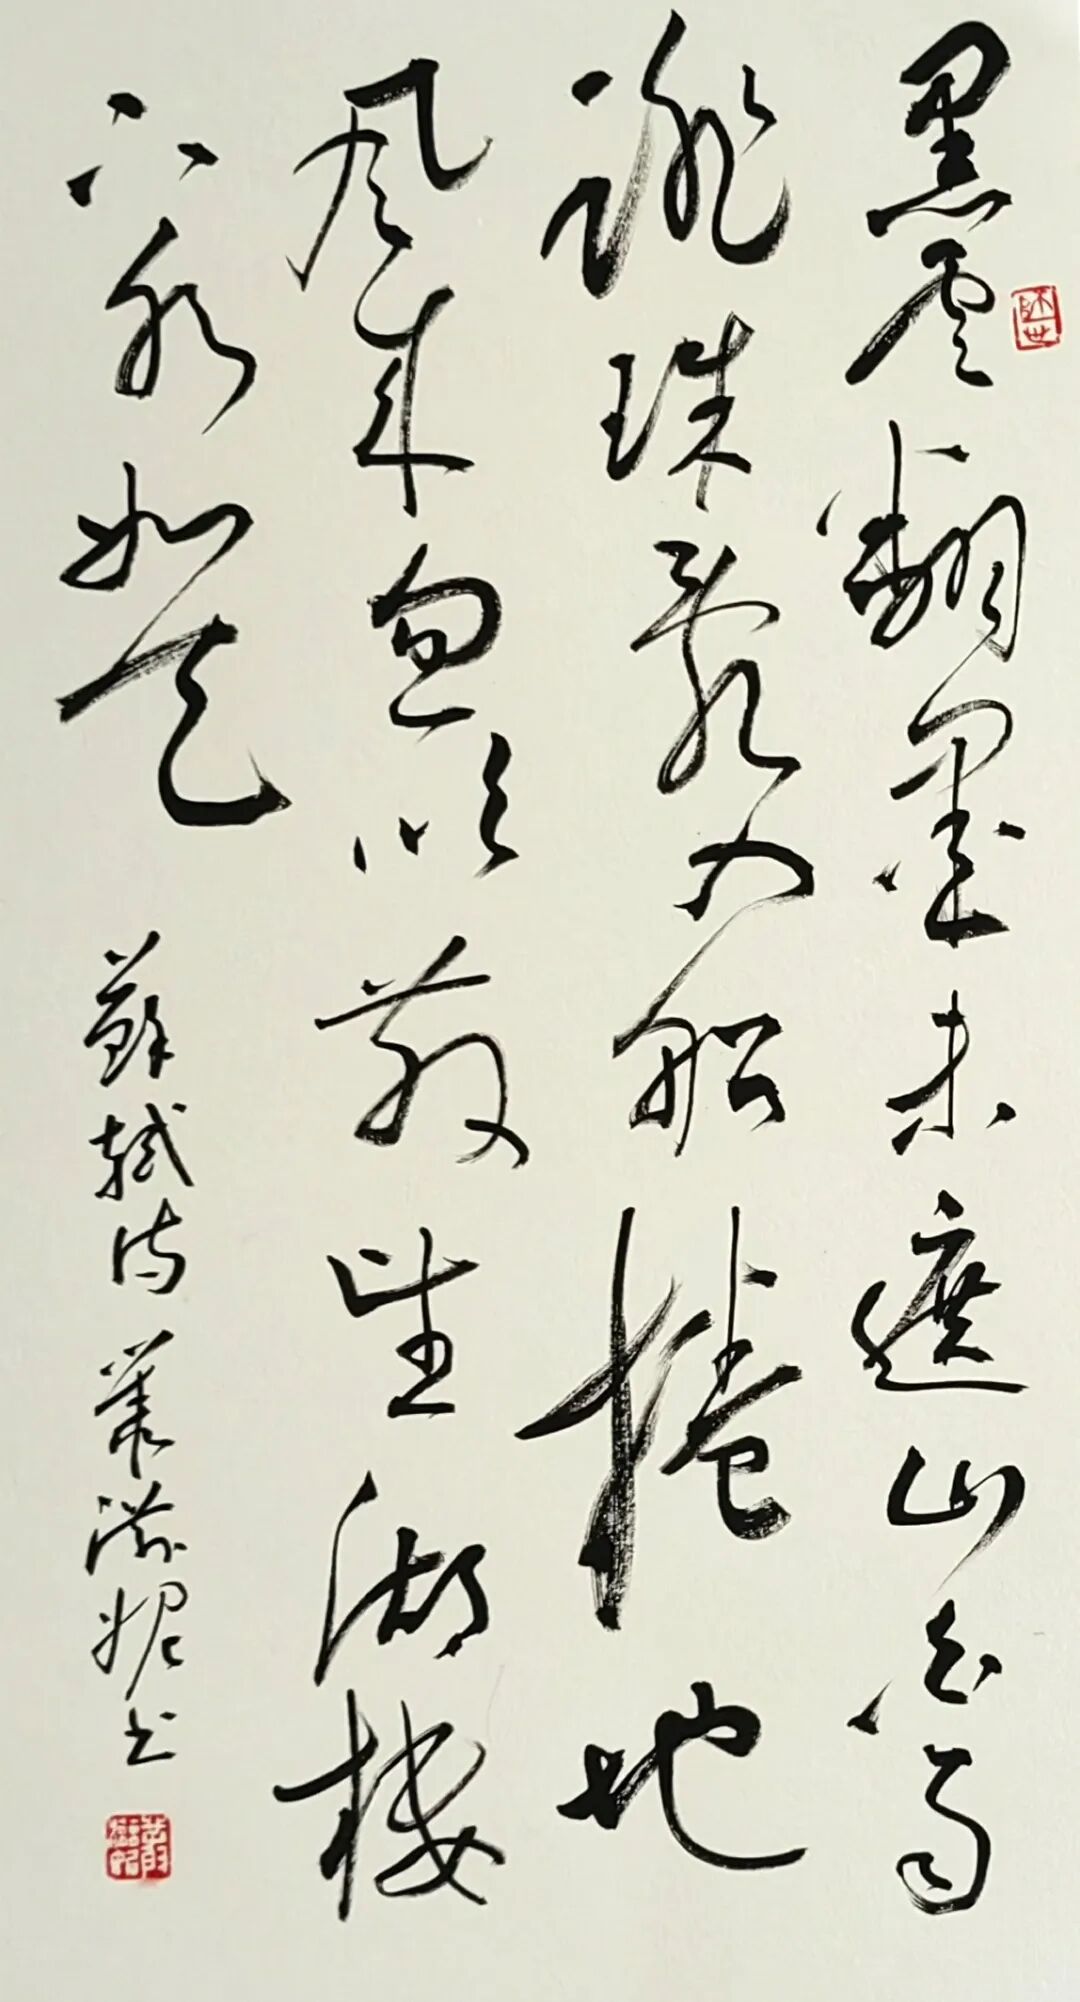 黑雲翻墨未遮山白雨
跳珠亂入船捲地
風來忽吹散望湖樓
下水如天 蘇軾詩 叢 妮書